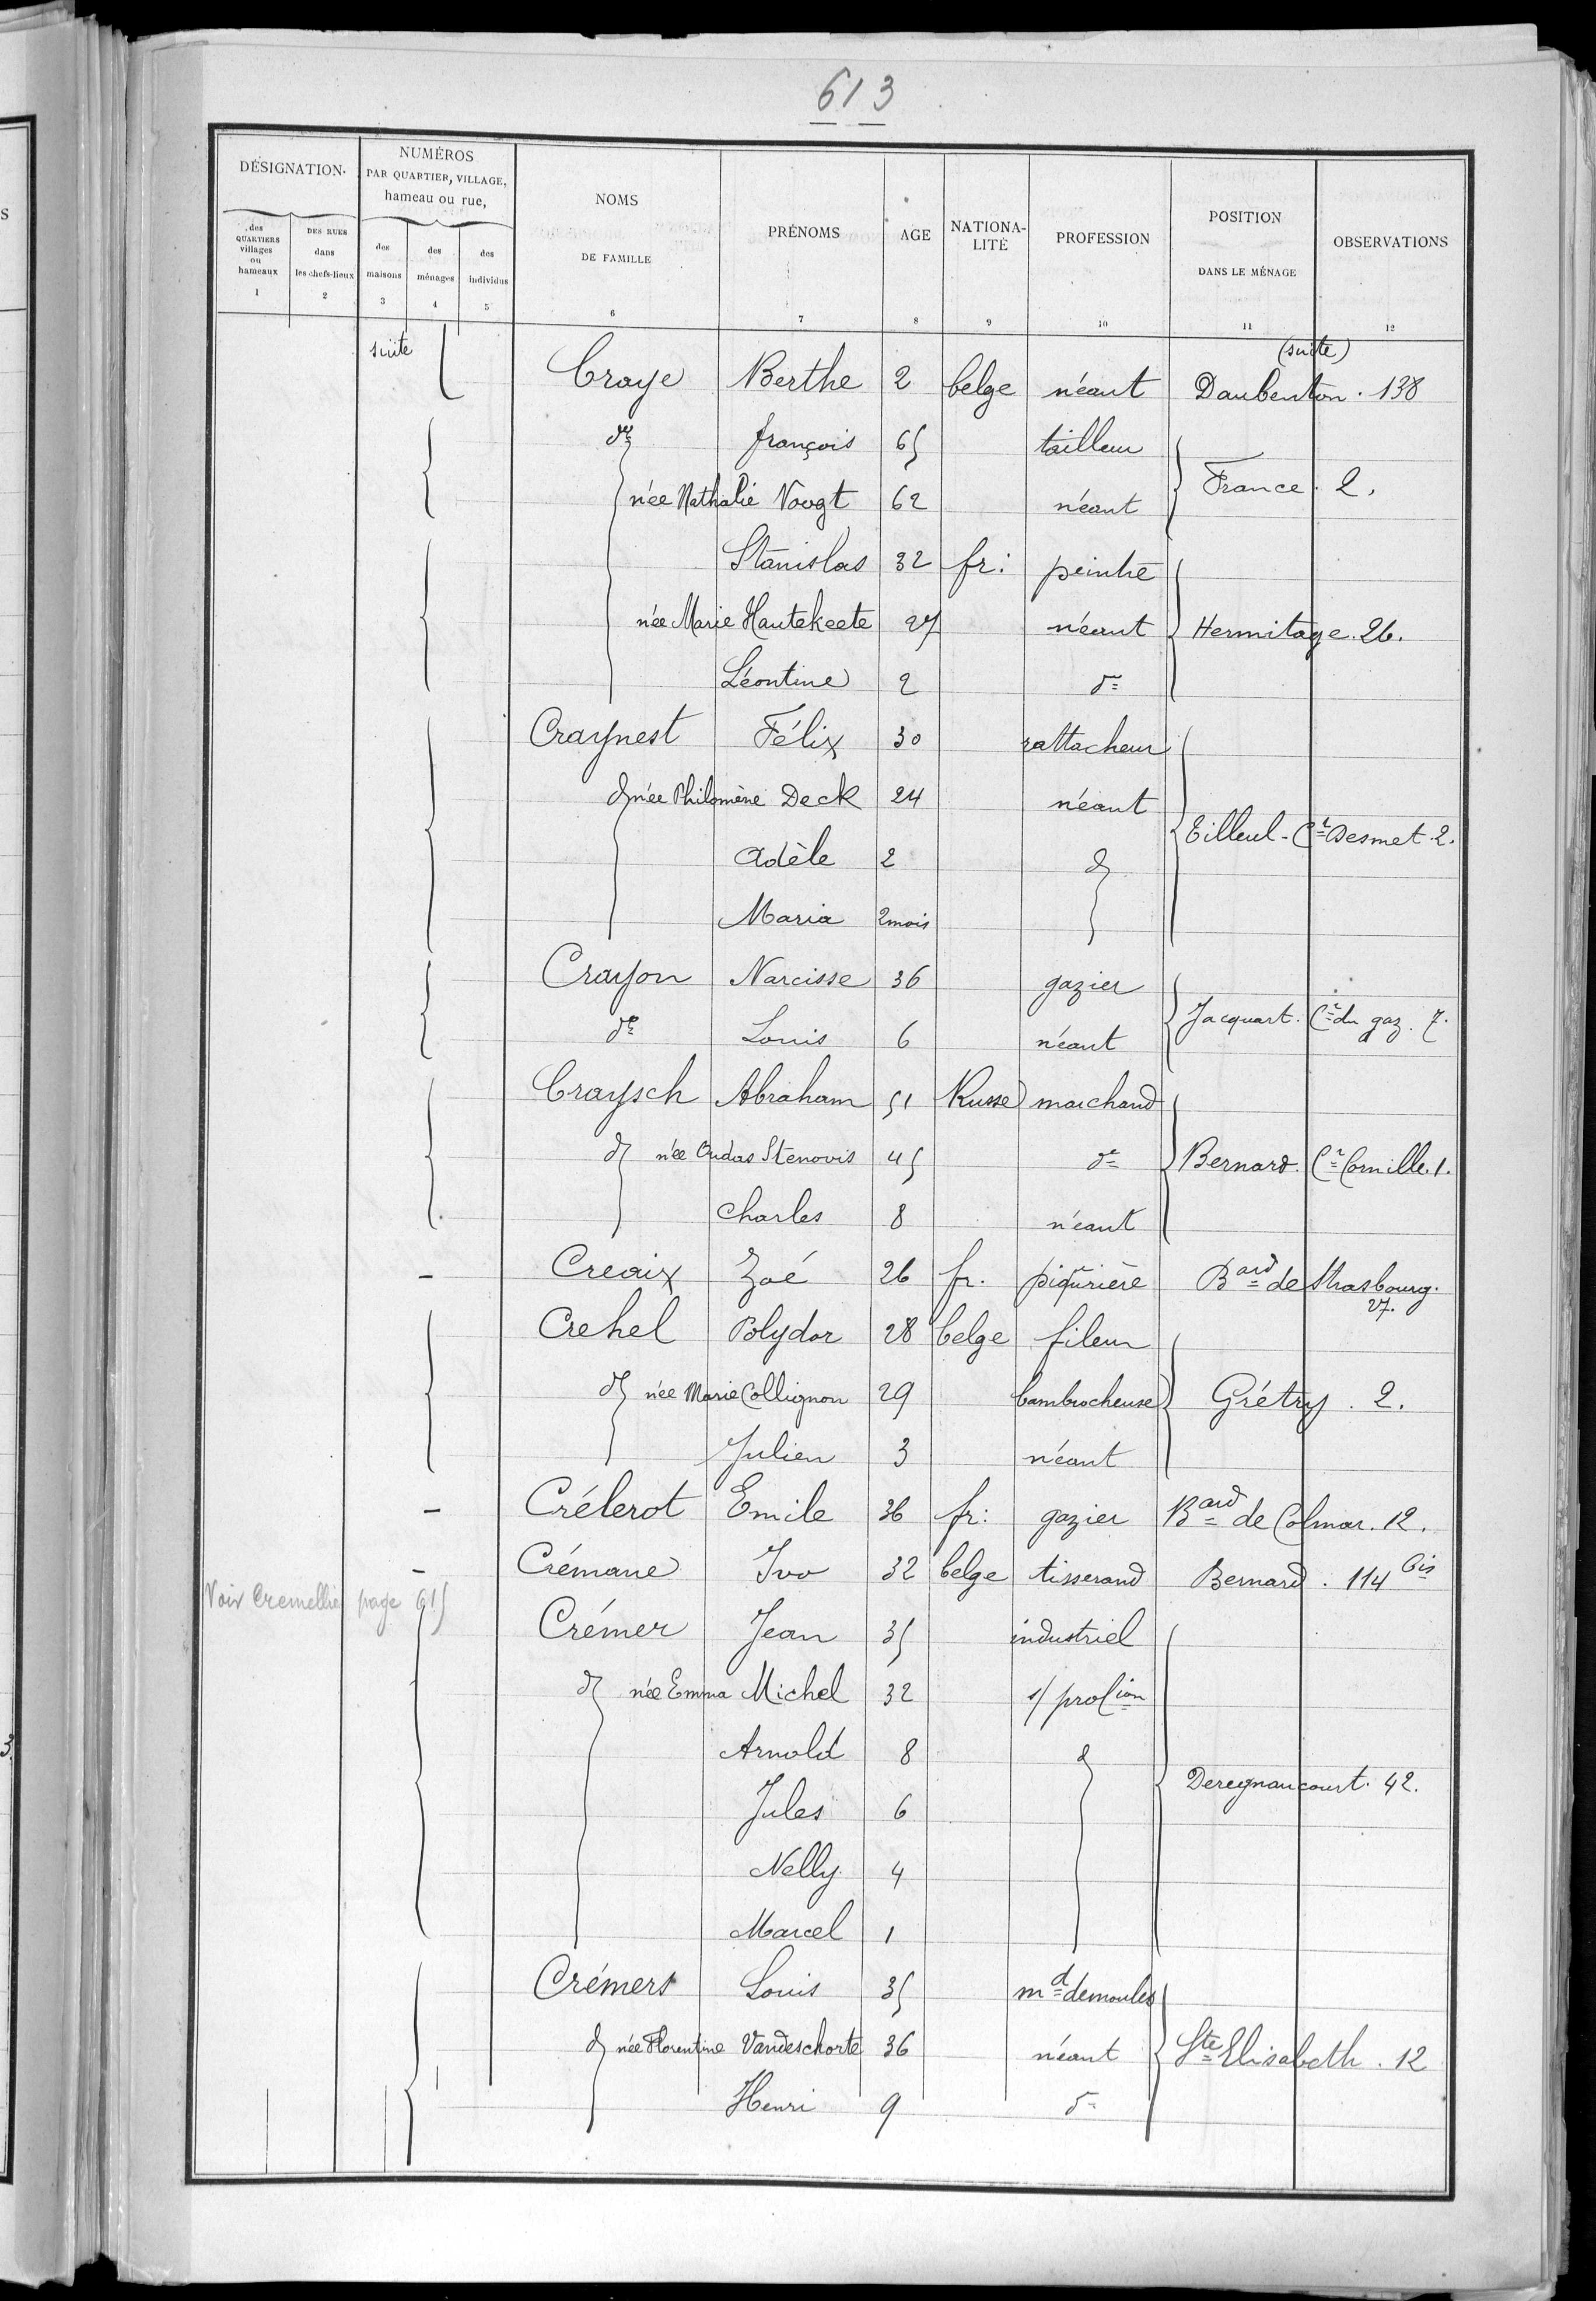 613
DÉSIGNATION
NUMÉROS PAR QUARTIER, VILLAGE, hameau ou rue,
NOMS DE FAMILLE
PRÉNOMS
AGE
NATIONA-LITÉ
PROFESSION
POSITION DANS LE MÉNAGE
OBSERVATIONS
des QUARTIERS villages ou hameaux
DES RUES dans les chefs-lieux
des maisons
des ménages
des individus
1 2 3 4 5 6 7 8 9 10 11 12
suite Craye Berthe 2 belge néant (suite) Daubenton. 138
d° françois 65 tailleur
née Nathalie Voogt 62 néant France. 2.
Stanislas 32 fr: peintre
née Marie Hautekeete 27 néant Hermitage. 26.
Léontine 2 d°
Craynest Félix 30 rattacheur
d° née Philomène Deck 24 néant
Tilleul - Cr Desmet. 2.
Adèle 2 d°
Maria 2 mois
Crayon Narcisse 36 gazier
Jacquart. Cr du gaz. 7.
d° Louis 6 néant
Craysch Abraham 51 Russe marchand
d° née Oudas Stenovis 45 d° Bernard. Cr Cornille. 1.
Charles 8 néant
Creaix Zoé 26 fr. piqûrière Bard de Strasbourg. 27.
Crehel Polydor 28 belge fileur
d° née Marie Collignon 29 bambrocheuse Grétry. 2.
Julien 3 néant
Crélerot Emile 36 fr: gazier Bard de Colmar. 12.
Crémane Ivo 32 belge tisserand Bernard. 114 bis
Voir Cremellie page 615
Crémer Jean 35 industriel
d° née Emma Michel 32 s/ profion
Arnold 8 d°
Deregnaucourt. 42.
Jules 6
Nelly 4
Marcel 1
Crémers Louis 35 md de moules
d° née Florentine Vandeschorte 36 néant Ste Elisabeth. 12
Henri 9 d°